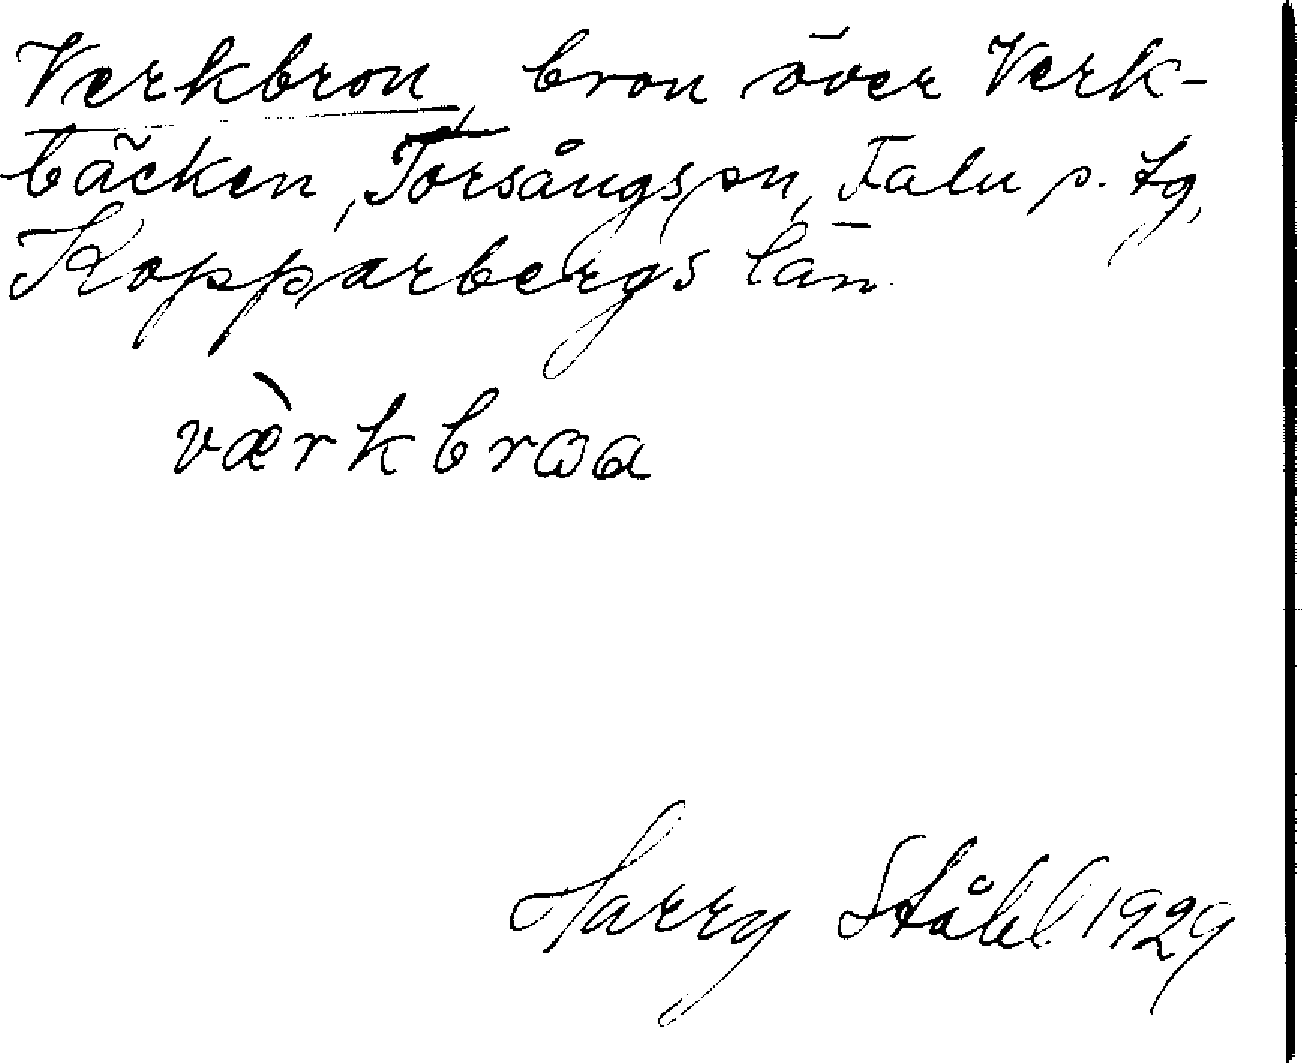 Verkbron, bron över Verk-
bäcken, Torsångs sn, Falu s. tg,
Kopparbergs län.
væ̀rkbrɷa
Harry Ståhl 1929